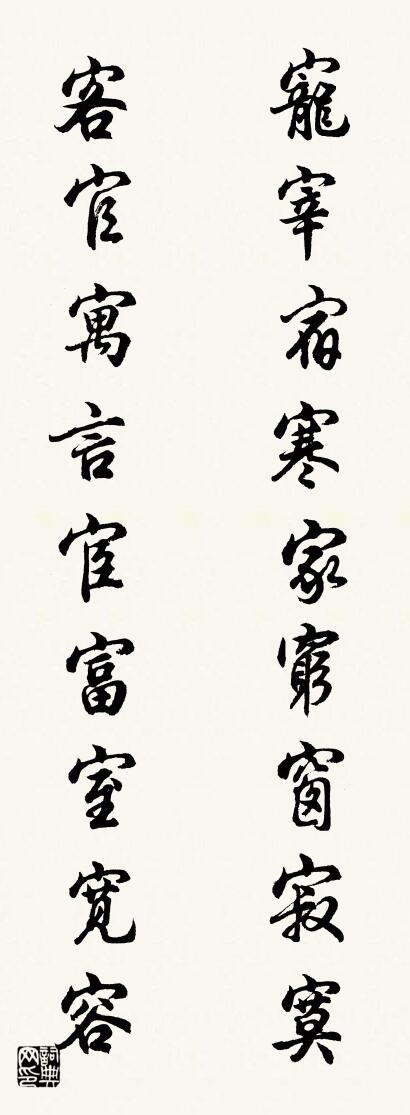 寵宰宿寒家窮窗寂寞
客官寓言宦富室寬容
詞典
网印